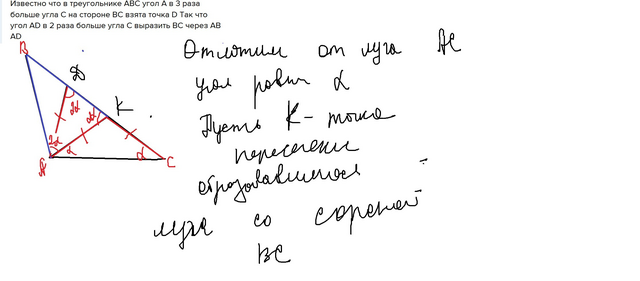 Известно что в треугольнике ABC угол A в 3 раза
больше угла C на стороне BC взята точка D Так что
угол AD в 2 раза больше угла C выразить BC через AB
AD
B
D
K
2α
2α
2α
α
α
A
C
Отложим от луча AC
угол равный α
Пусть K - точка
пересечения
образовавшегося
луча со стороной
BC